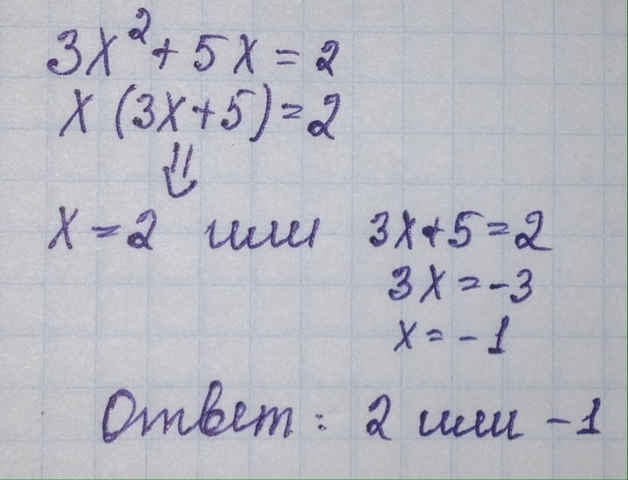 3x² + 5x = 2
x (3x+5) = 2
⇓
x = 2 или 3x+5=2
3x = -3
x = -1
Ответ: 2 или -1